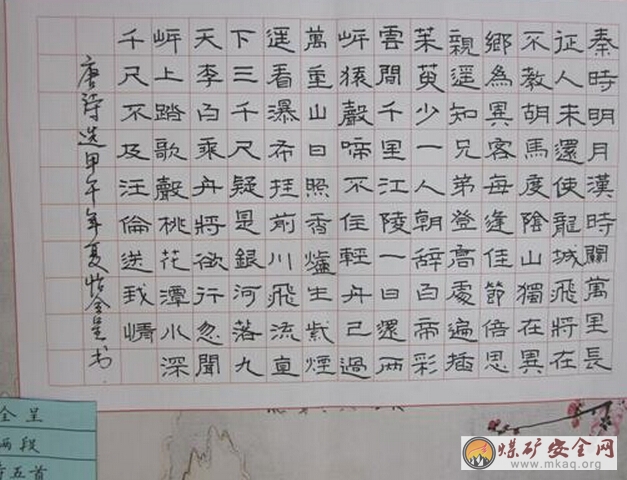 秦時明月漢時關萬里長
征人未還使龍城飛將在
不教胡馬度陰山獨在異
鄉為異客每逢佳節倍思
親遥知兄弟登高處遍插
茱萸少一人朝辭白帝彩
雲間千里江陵一日還两
岸猿聲啼不住輕舟已過
萬重山日照香爐生紫煙
遥看瀑布挂前川飛流直
下三千尺疑是銀河落九
天李白乘舟將欲行忽聞
岸上踏歌聲桃花潭水深
千尺不及汪倫送我情
唐詩选甲午年夏怡全呈书
全呈
两段
五首
煤矿安全网
www.mkaq.org